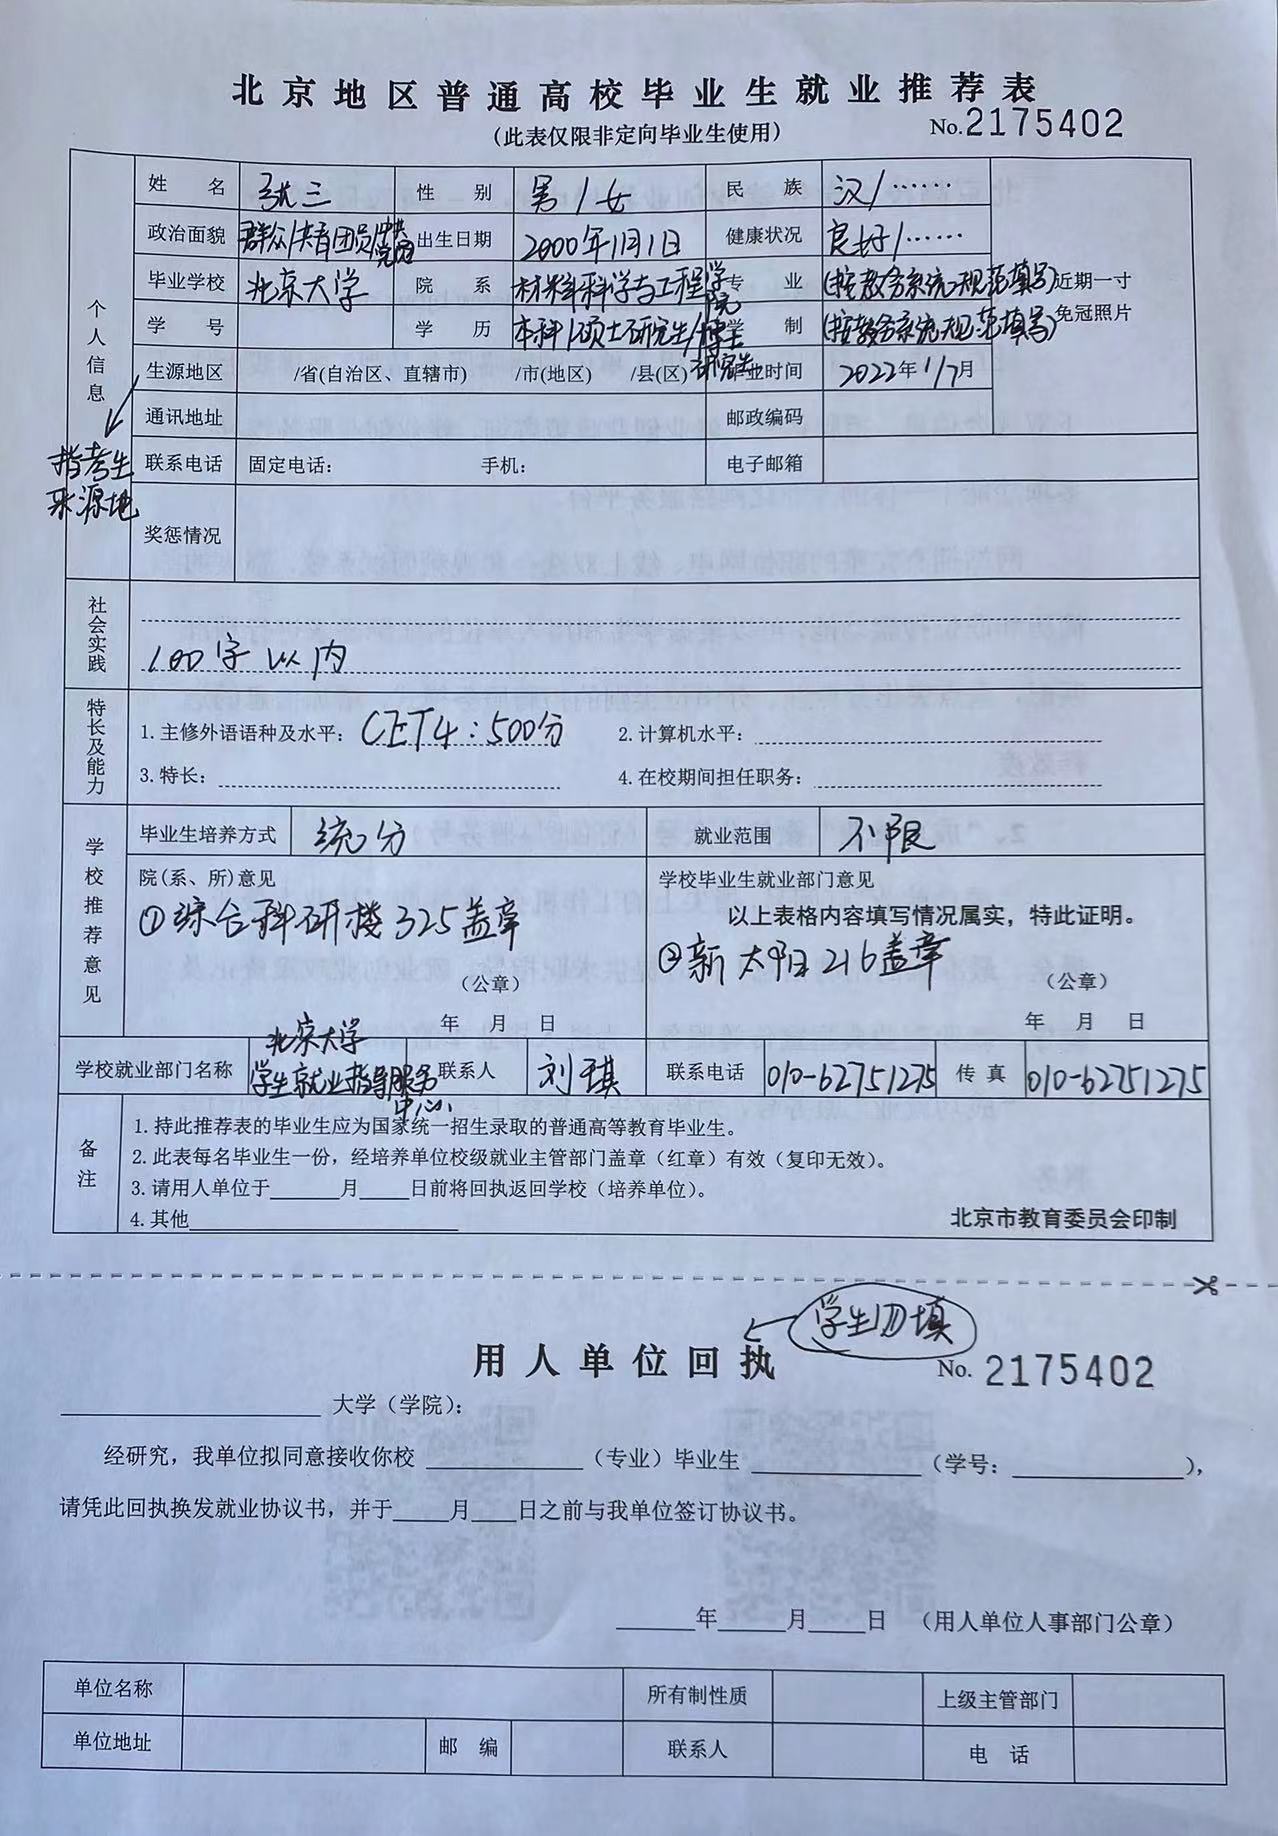 北京地区普通高校毕业生就业推荐表
(此表仅限非定向毕业生使用)
No.2175402
个人信息
姓 名 张三 性 别 男/女 民 族 汉/……
政治面貌 群众/共青团员/中共党员 出生日期 2000年1月1日 健康状况 良好/……
毕业学校 北京大学 院 系 材料科学与工程学院 专 业 (按教务系统规范填写)
近期一寸
免冠照片
学 号 学 历 本科/硕士研究生/博士研究生 学 制 (按教务系统规范填写)
生源地区 /省(自治区、直辖市) /市(地区) /县(区) 毕业时间 2022年1/7月
指考生
来源地
通讯地址 邮政编码
联系电话 固定电话: 手机: 电子邮箱
奖惩情况
社会实践
100字以内
特长及能力
1.主修外语语种及水平: CET4:500分 2.计算机水平:
3.特长: 4.在校期间担任职务:
学校推荐意见
毕业生培养方式 统分 就业范围 不限
院(系、所)意见
①综合科研楼325盖章
(公章)
年 月 日
学校毕业生就业部门意见
以上表格内容填写情况属实，特此证明。
②新太阳216盖章
(公章)
年 月 日
学校就业部门名称 北京大学学生就业指导服务中心 联系人 刘琪 联系电话 010-62751275 传 真 010-62751275
备注
1.持此推荐表的毕业生应为国家统一招生录取的普通高等教育毕业生。
2.此表每名毕业生一份，经培养单位校级就业主管部门盖章(红章)有效(复印无效)。
3.请用人单位于______月____日前将回执返回学校(培养单位)。
4.其他
北京市教育委员会印制
学生勿填
用人单位回执
No. 2175402
大学(学院):
经研究，我单位拟同意接收你校 (专业)毕业生 (学号: ),
请凭此回执换发就业协议书，并于____月____日之前与我单位签订协议书。
年 月 日 (用人单位人事部门公章)
单位名称 所有制性质 上级主管部门
单位地址 邮 编 联系人 电 话